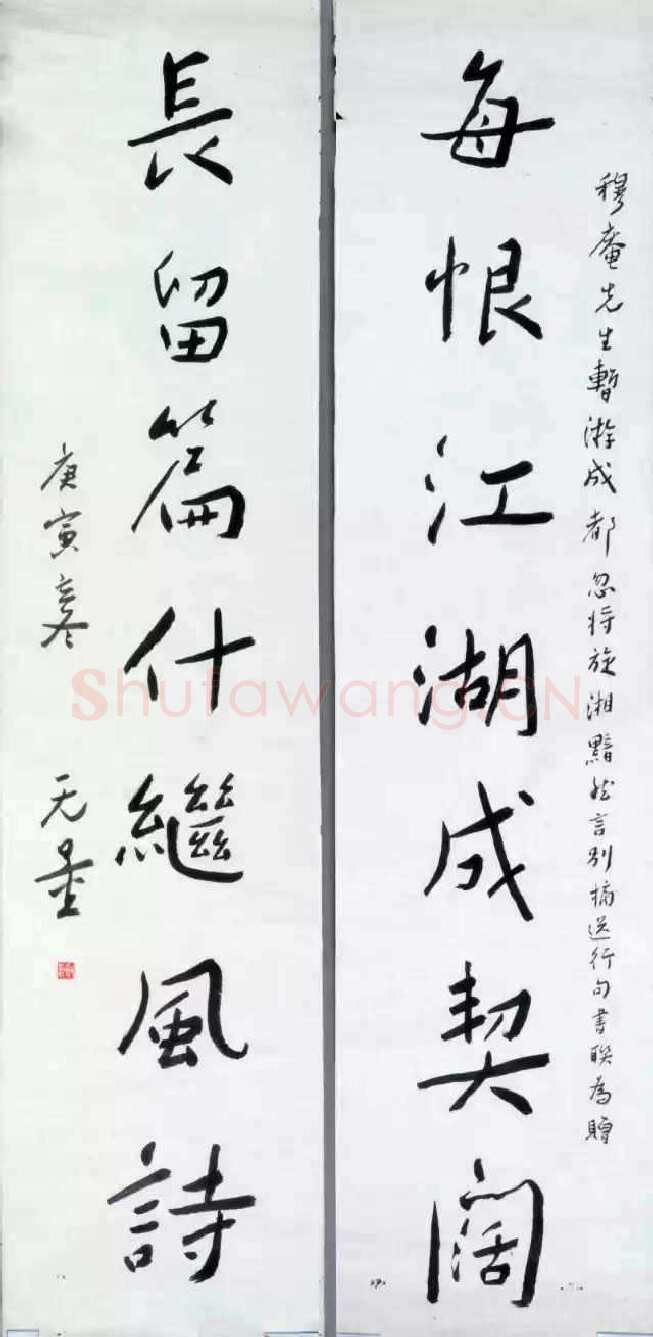 穆庵先生暫游成都忽将旋湘黯然言别摘送行句書聯為贈
每恨江湖成契闊
長留篇什繼風詩
庚寅春
无量
Shufawang.CN